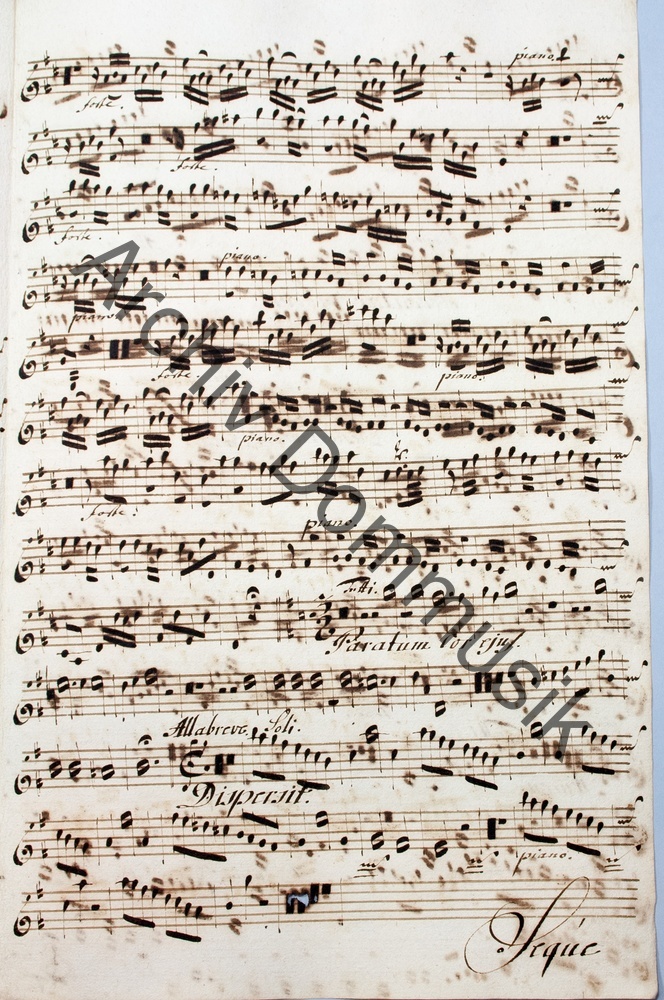 piano.
forte.
forte.
forte.
piano.
piano.
forte.
piano.
piano.
forte.
piano.
Tutti.
Paratum Cor ejus.
Allabreve Soli.
Dispersit.
piano.
Seque
Archiv Dommusik